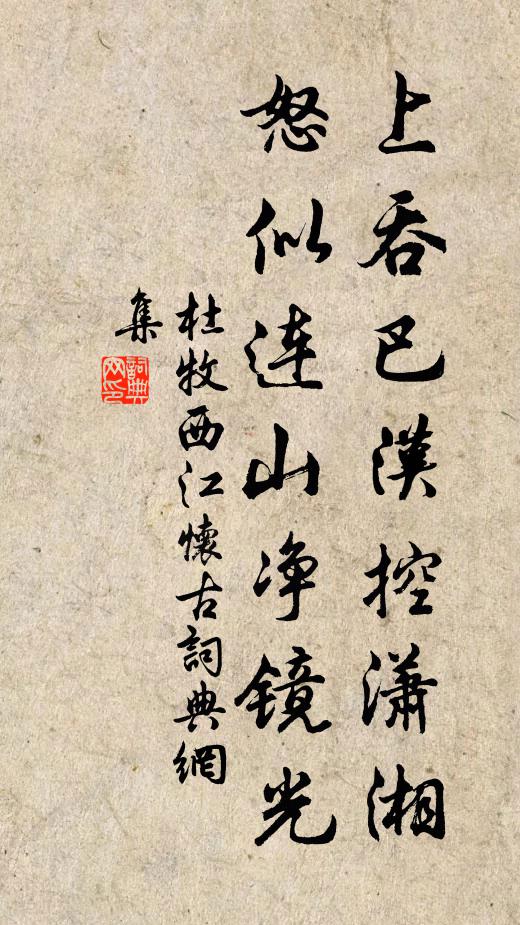 上吞巴漢控瀟湘
怒似连山净镜光
杜牧西江懷古詞典網
集
詞典
网印